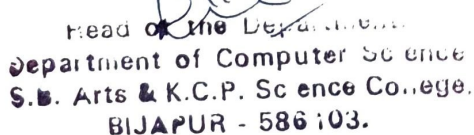 Head of the Department
Department of Computer Science
S.B. Arts & K.C.P. Science College.
BIJAPUR - 586103.